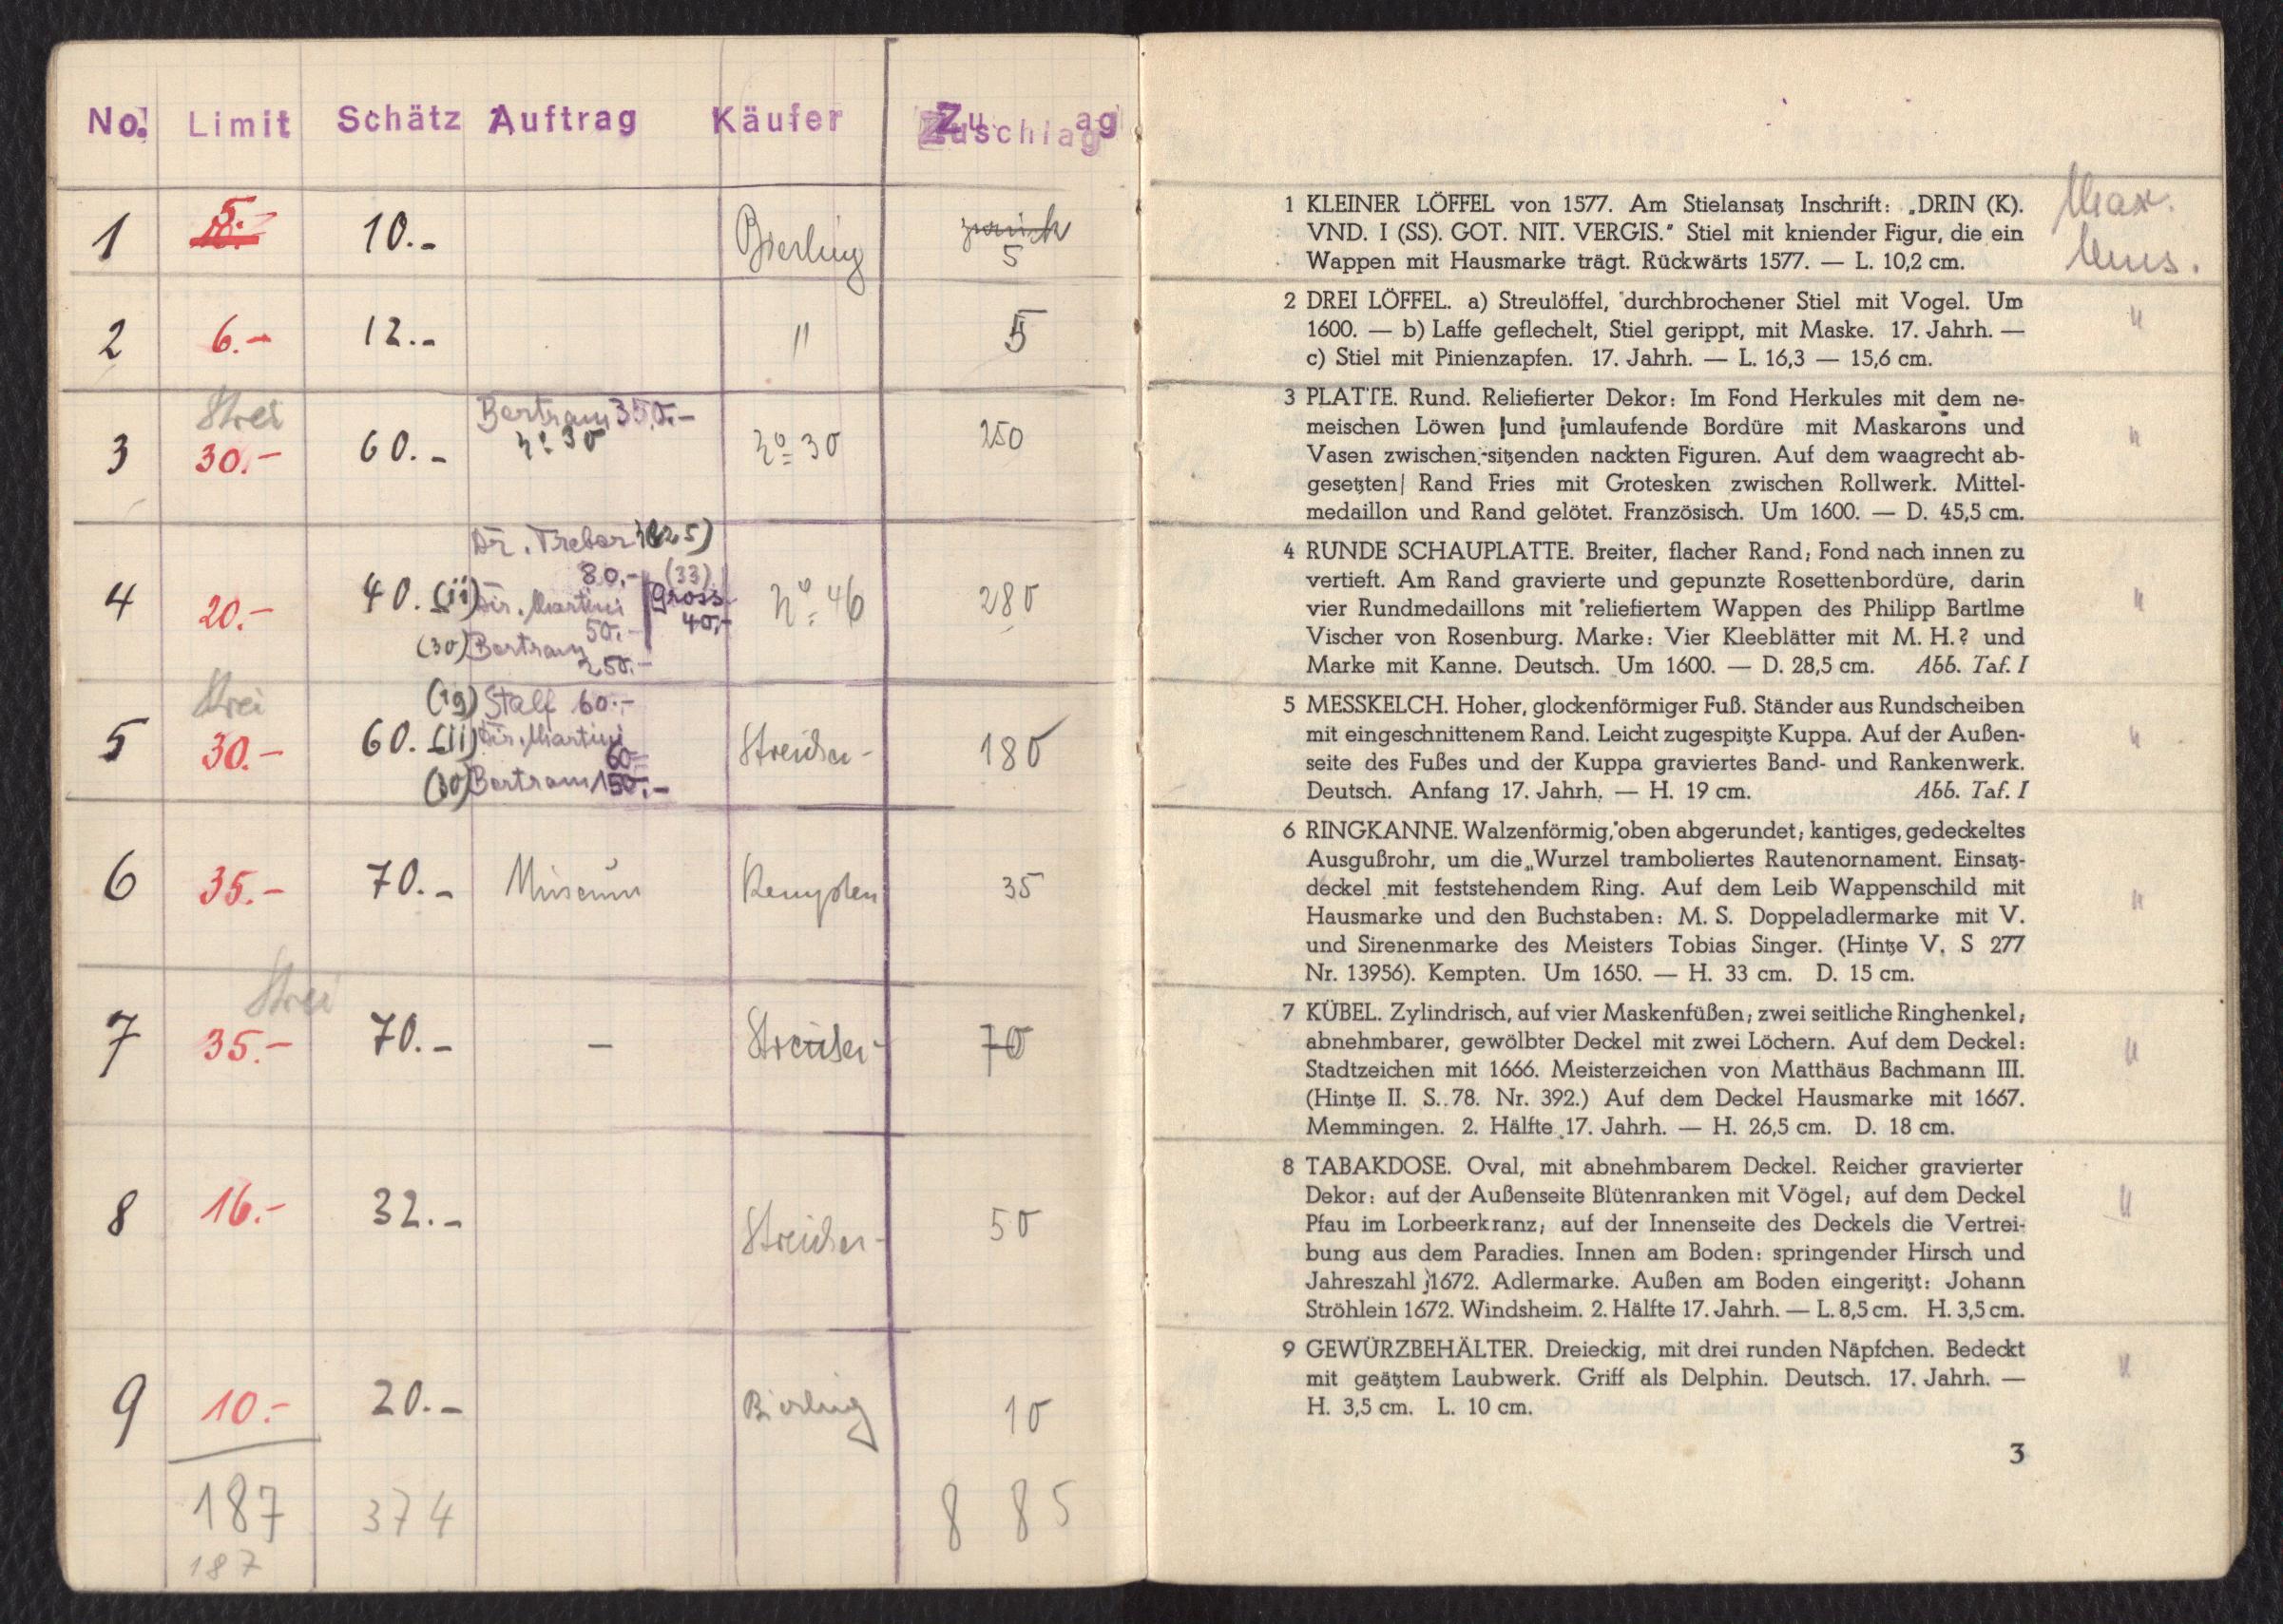 No. Limit Schätz Auftrag Käufer Zuschlag
1 5.- 10.- Bierling zurück 5
2 6.- 12.- " 5
Strei Bertram 350.-
3 30.- 60.- No 30 No 30 250
Dr. Trebor (25)
80.- (33)
4 20.- 40. (11) Dir. Martini Gross No 46 280
50.- 40.-
(30) Bertram
250.-
Strei (19) Stalf 60.-
5 30.- 60. (11) Dir. Martini Streicher - 180
60=
(30) Bertram 150.-
6 35.- 70.- Museum Kempten 35
Strei
7 35.- 70.- - Streicher - 70
8 16.- 32.- Streicher - 50
9 10.- 20.- Bierling 10
187 374 885
187
1 KLEINER LÖFFEL von 1577. Am Stielansatz Inschrift: „DRIN (K).
VND. I (SS). GOT. NIT. VERGIS." Stiel mit kniender Figur, die ein
Wappen mit Hausmarke trägt. Rückwärts 1577. — L. 10,2 cm.
Max.
Mus.
2 DREI LÖFFEL. a) Streulöffel, durchbrochener Stiel mit Vogel. Um
1600. — b) Laffe geflechelt, Stiel gerippt, mit Maske. 17. Jahrh. —
c) Stiel mit Pinienzapfen. 17. Jahrh. — L. 16,3 — 15,6 cm.
"
3 PLATTE. Rund. Reliefierter Dekor: Im Fond Herkules mit dem ne-
meischen Löwen und umlaufende Bordüre mit Maskarons und
Vasen zwischen sitzenden nackten Figuren. Auf dem waagrecht ab-
gesetzten Rand Fries mit Grotesken zwischen Rollwerk. Mittel-
medaillon und Rand gelötet. Französisch. Um 1600. — D. 45,5 cm.
"
4 RUNDE SCHAUPLATTE. Breiter, flacher Rand; Fond nach innen zu
vertieft. Am Rand gravierte und gepunzte Rosettenbordüre, darin
vier Rundmedaillons mit reliefiertem Wappen des Philipp Bartlme
Vischer von Rosenburg. Marke: Vier Kleeblätter mit M. H.? und
Marke mit Kanne. Deutsch. Um 1600. — D. 28,5 cm. Abb. Taf. I
"
5 MESSKELCH. Hoher, glockenförmiger Fuß. Ständer aus Rundscheiben
mit eingeschnittenem Rand. Leicht zugespitzte Kuppa. Auf der Außen-
seite des Fußes und der Kuppa graviertes Band- und Rankenwerk.
Deutsch. Anfang 17. Jahrh. — H. 19 cm. Abb. Taf. I
"
6 RINGKANNE. Walzenförmig, oben abgerundet; kantiges, gedeckeltes
Ausgußrohr, um die Wurzel tramboliertes Rautenornament. Einsatz-
deckel mit feststehendem Ring. Auf dem Leib Wappenschild mit
Hausmarke und den Buchstaben: M. S. Doppeladlermarke mit V.
und Sirenenmarke des Meisters Tobias Singer. (Hintze V. S 277
Nr. 13956). Kempten. Um 1650. — H. 33 cm. D. 15 cm.
"
7 KÜBEL. Zylindrisch, auf vier Maskenfüßen; zwei seitliche Ringhenkel;
abnehmbarer, gewölbter Deckel mit zwei Löchern. Auf dem Deckel:
Stadtzeichen mit 1666. Meisterzeichen von Matthäus Bachmann III.
(Hintze II. S. 78. Nr. 392.) Auf dem Deckel Hausmarke mit 1667.
Memmingen. 2. Hälfte 17. Jahrh. — H. 26,5 cm. D. 18 cm.
"
8 TABAKDOSE. Oval, mit abnehmbarem Deckel. Reicher gravierter
Dekor: auf der Außenseite Blütenranken mit Vögel; auf dem Deckel
Pfau im Lorbeerkranz; auf der Innenseite des Deckels die Vertrei-
bung aus dem Paradies. Innen am Boden: springender Hirsch und
Jahreszahl 1672. Adlermarke. Außen am Boden eingeritzt: Johann
Ströhlein 1672. Windsheim. 2. Hälfte 17. Jahrh. — L. 8,5 cm. H. 3,5 cm.
"
9 GEWÜRZBEHÄLTER. Dreieckig, mit drei runden Näpfchen. Bedeckt
mit geätztem Laubwerk. Griff als Delphin. Deutsch. 17. Jahrh. —
H. 3,5 cm. L. 10 cm.
"
3